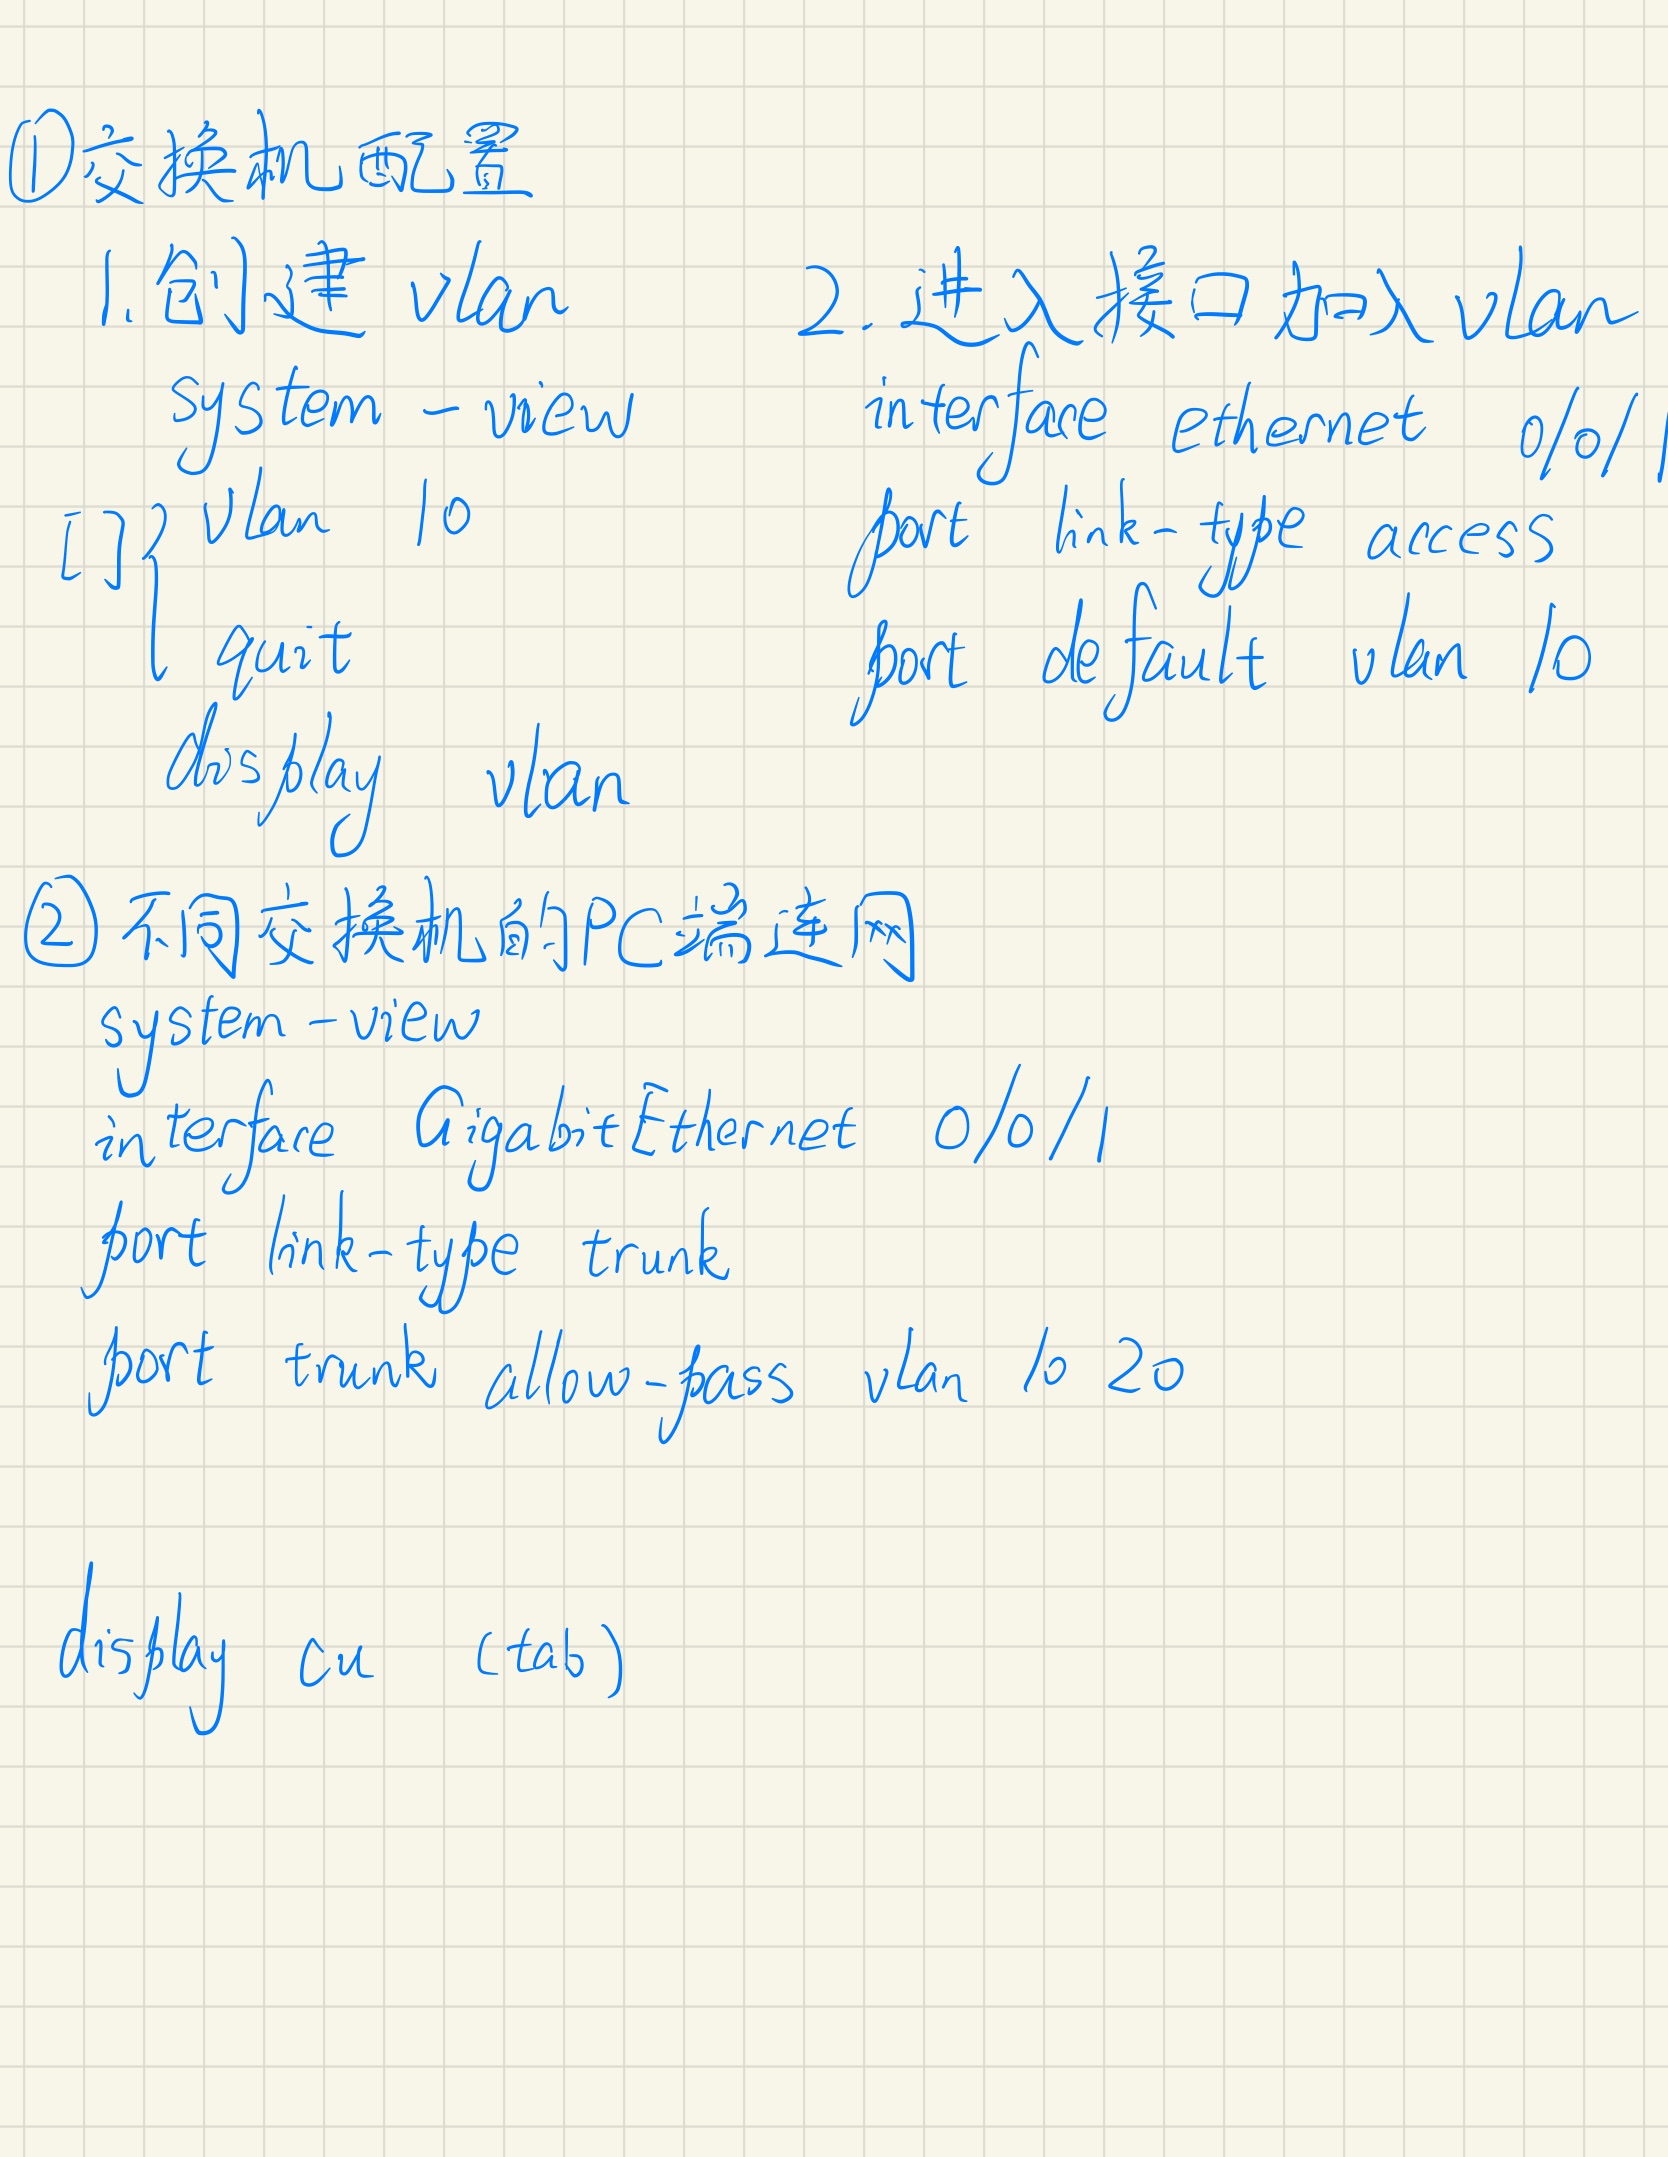 ①交换机配置
1.创建 vlan
system-view
[] { vlan 10
quit
display vlan
2.进入接口加入vlan
interface ethernet 0/0/1
port link-type access
port default vlan 10
②不同交换机的PC端连网
system-view
interface GigabitEthernet 0/0/1
port link-type trunk
port trunk allow-pass vlan 10 20
display cu (tab)